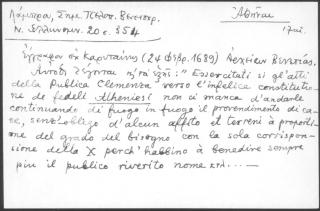 Λάμπρα, Σημ. Πελοπ. Βενετοκρ.
Ἀθῆναι
Ν. Ἑλληνομν. 20 σ. 554
17 αἰ.
Ἔγγραφον ἐκ Καρυταίνης (24 Φεβρ. 1689) Ἀρχείων Βενετίας.
"Essercitati si gl'atti
della Publica Clemenza verso l'infelice constitutio-
ne de fedeli Atheniesi non si manca d'andarle
continuando di fuogo in fuogo il provendimento di ca-
se, senz'obligo d'alcun affitto et terreni à proporti-
one del grado del bisogno con la sola corrispon-
sione della X perch' habbino à benedire sempre
piu il publico riverito nome κτλ....